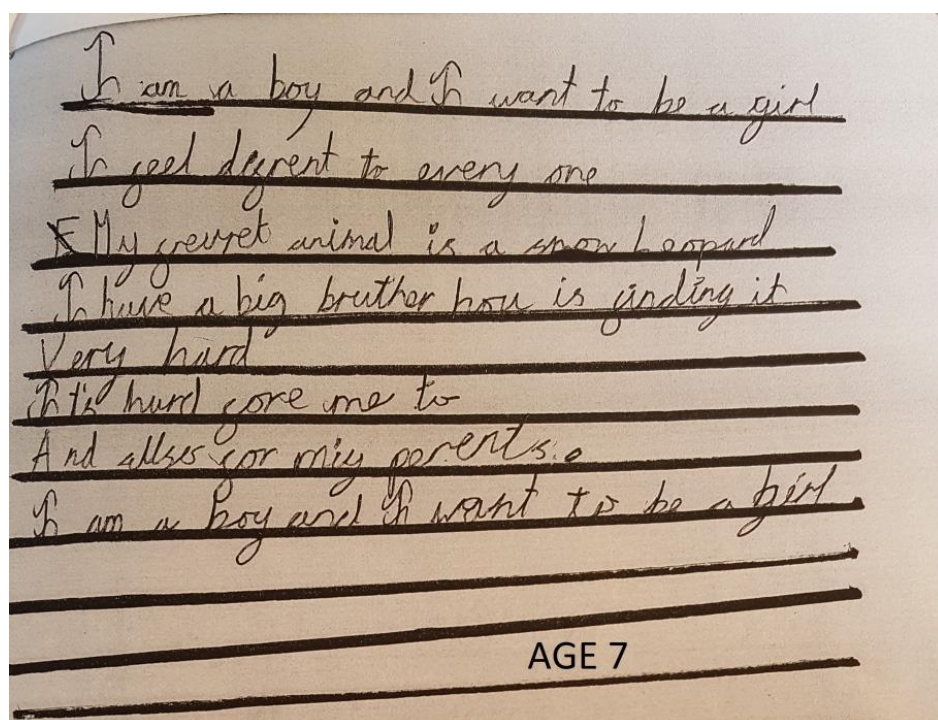 I am a boy and I want to be a girl
I feel difrent to every one
My fevret animal is a snow leopard
I have a big bruther hou is finding it
Very hard
It's hard fore me to
And allso for miy perents.
I am a boy and I want to be a girl
AGE 7